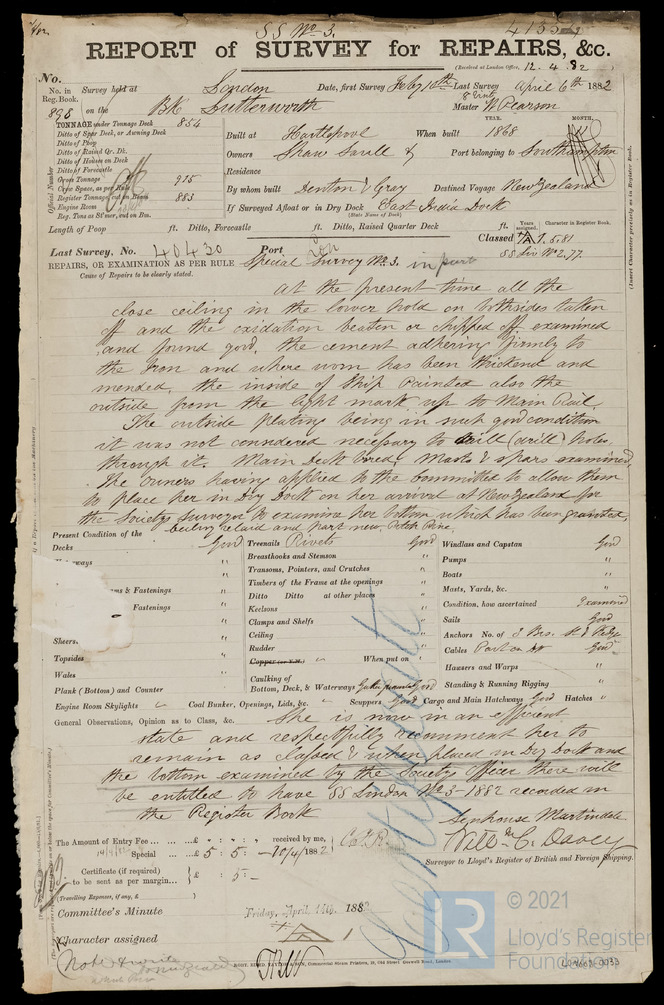 SS No 3.
41354
REPORT of SURVEY for REPAIRS, &c.
(Received at London Office, 12.4.82
No.
No. in Reg. Book. Survey held at London Date, first Survey Feby 10th Last Survey April 6th 1882
898 on the Bk Lutterworth Master W. Pearson
TONNAGE under Tonnage Deck 854
Ditto of Spar Deck, or Awning Deck
Ditto of Poop
Ditto of Raised Qr. Dk.
Ditto of Houses on Deck
Ditto of Forecastle
Gross Tonnage 915
Crew Space, as per Rule
Register Tonnage, cut on Beam 883
Engine Room
Reg. Tons as St'mer, cut on Bm.
Official Number
Built at Hartlepool When built YEAR. 1868 MONTH.
Owners Shaw Savill & Port belonging to Southampton
Residence
By whom built Denton & Gray Destined Voyage New Zealand
If Surveyed Afloat or in Dry Dock East India Dock
(State Name of Dock)
Length of Poop ft. Ditto, Forecastle ft. Ditto, Raised Quarter Deck ft.
Years assigned. Character in Register Book.
Classed A 1. 5.81
SS Lon No 2.77
Last Survey, No. 40430 Port Lon
REPAIRS, OR EXAMINATION AS PER RULE Special Survey No. 3. in part
Cause of Repairs to be clearly stated.
At the present time all the
close ceiling in the lower hold on both sides taken
off and the oxidation beaten or chipped off examined
and found good, the cement adhering firmly to
the Iron and where worn has been thickend and
mended, the inside of ship Painted also the
outside from the light mark up to Main Rail.
The outside plating being in such good condition
it was not considered necessary to drill (drill) holes
through it. Main Deck bored, Masts & spars examined,
The owners having applied to the Committed to allow them
to place her in Dry Dock on her arrival at New Zealand for
the Societys Surveyor to examine her bottom which has been granted,
Ceiling relaid and part new, Pitch Pine.
Present Condition of the
Decks Good
Treenails Rivets Good
Windlass and Capstan Good
Breasthooks and Stemson "
Pumps "
Transoms, Pointers, and Crutches "
Boats "
& Fastenings "
Timbers of the Frame at the openings "
Masts, Yards, &c. "
Ditto Ditto at other places "
Condition, how ascertained Examined
Fastenings "
Keelsons "
Sails Good
Clamps and Shelfs "
Anchors No. of 3 Brs.
Sheers.
Ceiling "
Cables Good
Topsides "
Rudder "
Hawsers and Warps "
Wales "
Copper (or Y.M.) When put on
Standing & Running Rigging "
Plank (Bottom) and Counter
Caulking of Bottom, Deck, & Waterways Good
Engine Room Skylights Coal Bunker, Openings, Lids, &c. " Scuppers Good Cargo and Main Hatchways Good Hatches "
General Observations, Opinion as to Class, &c.
She is now in an efficient
state and respectfully recomment her to
remain as classed & when placed in Dry Dock and
the bottom examined by the Societys Officer there will
be entitled to have SS London No 3-1882 recorded in
the Register Book
Senhouse Martindale
Will. C. Davey
Surveyor to Lloyd's Register of British and Foreign Shipping.
The Amount of Entry Fee ... ... £ : : received by me,
Special ... £ 5 : 5 : – 10/4/1882
Certificate (if required) to be sent as per margin... £ : 5 : –
(Travelling Expenses, if any, £ )
Committee's Minute Friday, April 14th, 1882
Character assigned A 1
Note & write
ROBT. EDMD. TAYLOR & SON, Commercial Steam Printers, 19, Old Street, Goswell Road, London.
LR
© 2021
Lloyd's Register
Foundation